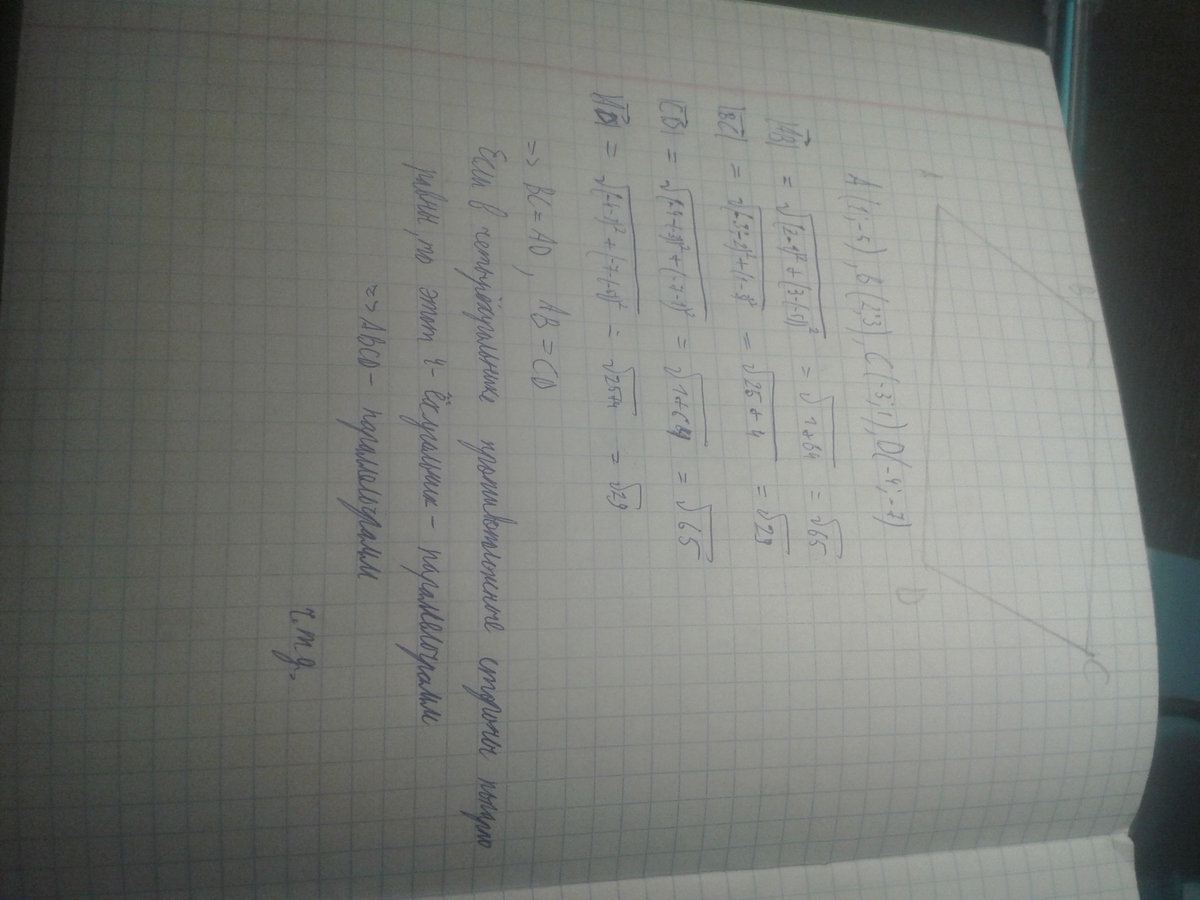 A B C D
A(1;-5), B(2;3), C(-3;1), D(-4;-7)
|AB| = √(2-1)² + (3-(-5))² = √1+64 = √65
|BC| = √(-3-2)² + (1-3)² = √25+4 = √29
|CD| = √(-4+3)² + (-7-1)² = √1+64 = √65
|AD| = √(-4-1)² + (-7-(-5))² = √25+4 = √29
=> BC = AD, AB = CD
Если в четырёхугольнике противоположные стороны попарно
равны, то этот 4-ёхугольник - параллелограмм
=> ABCD - параллелограмм
ч.т.д.